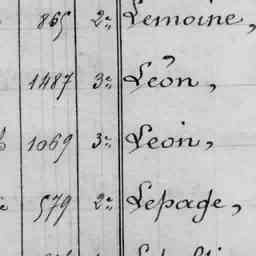 865 2e Lemoine,
1487 3e Léon,
1069 3e Leon,
579 2e Lepage,